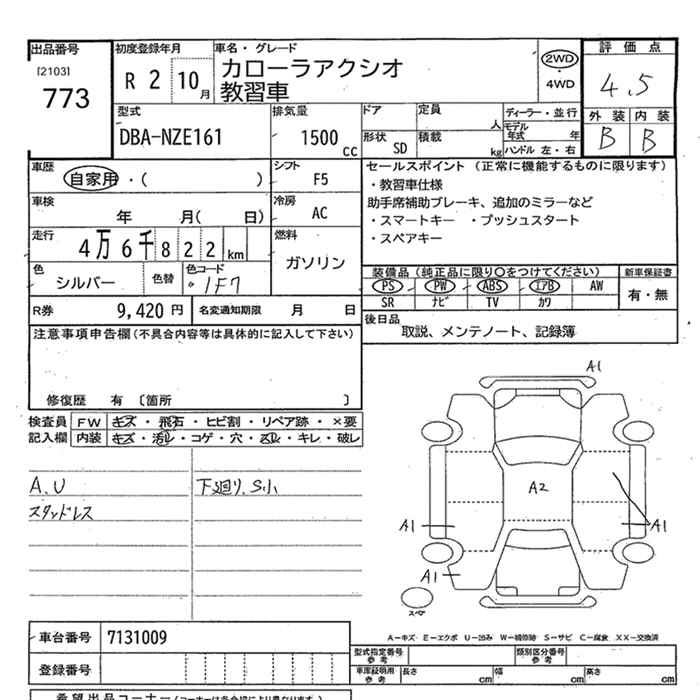 出品番号
[2103]
773
初度登録年月
R 2 10月
車名・グレード
カローラアクシオ
教習車
2WD
・
4WD
評価点
4.5
外装 内装
B B
型式
DBA-NZE161
排気量
1500 cc
ドア 定員 人
形状 SD 積載 kg
ディーラー・並行
モデル年式 年
ハンドル 左・右
車歴
自家用・( )
シフト
F5
車検
年 月( 日)
冷房
AC
走行
4万6千822km
燃料
ガソリン
色
シルバー
色替
色コード
1F7
R券 9,420円
名変通知期限 月 日
セールスポイント (正常に機能するものに限ります)
・教習車仕様
助手席補助ブレーキ、追加のミラーなど
・スマートキー ・プッシュスタート
・スペアキー
装備品(純正品に限り○をつけてください) 新車保証書
PS PW ABS エアB AW 有・無
SR ナビ TV カワ
後日品
取説、メンテノート、記録簿
注意事項申告欄(不具合内容等は具体的に記入して下さい)
修復歴 有 〔箇所 〕
検査員記入欄
FW キズ・飛石・ヒビ割・リペア跡・×要
内装 キズ・汚れ・コゲ・穴・スレ・キレ・破レ
A.U
スタッドレス
下廻り.S小
A1
A2
A1 A1
A1
スペア
A−キズ E−エクボ U−凹み W−補修跡 S−サビ C−腐食 XX−交換済
車台番号 7131009
登録番号
型式指定番号 参考
類別区分番号 参考
車庫証明用 参考 長さ cm 幅 cm 高さ cm
希望出品コーナー(コーナーは各会場により異なります。)